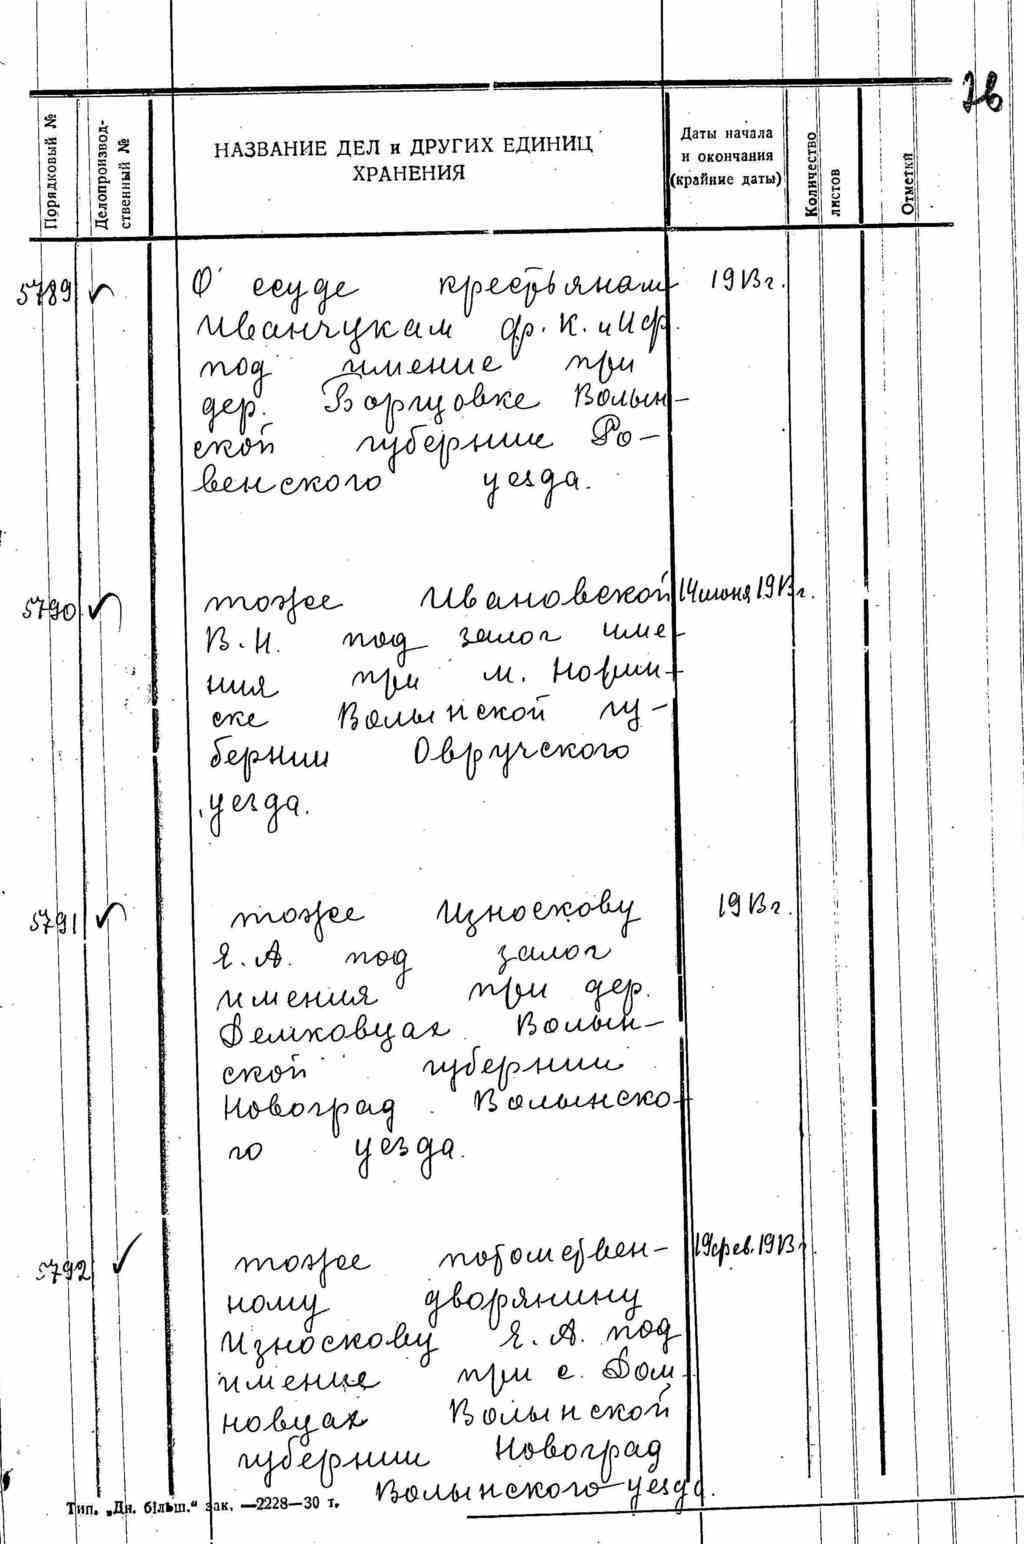 76
Порядковый №
Делопроизвод-
ственный №
НАЗВАНИЕ ДЕЛ и ДРУГИХ ЕДИНИЦ
ХРАНЕНИЯ
Даты начала
и окончания
(крайние даты)
Количество
листов
Отметки
5789 О ссуде крестьянам 1913г.
Иванчукам Ф. К. и И Ф.
под имение при
дер. Ворцовке Волын-
ской губернии Ро-
венского уезда.
5790 тоже Ивановской 14 июня 1913г.
В. И. под залог име-
ния при м. Норин-
ске Волынской гу-
бернии Овручского
уезда.
5791 тоже Износкову 1913г.
Я. А. под залог
имения при дер.
Волын-
ской губернии
Новоград Волынско-
го уезда.
5792 тоже потомствен- 19 фев. 1913г.
ному дворянину
Износкову Я. А. под
имение при с. Дом
новцах Волынской
губернии Новоград
Волынского уезда.
Тип. „Дн. більш.“ зак. —2228—30 т.